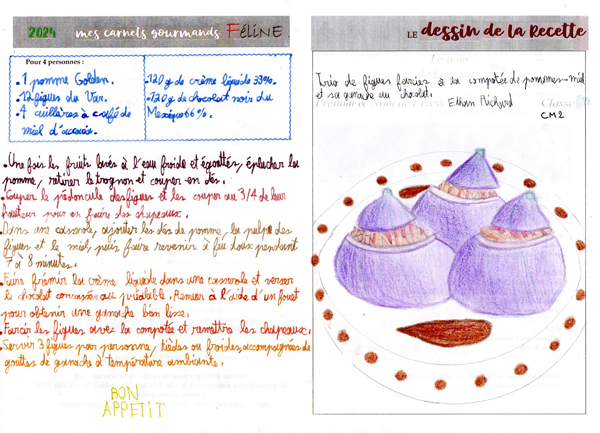 2024 mes carnets gourmands FéLiNE
Pour 4 personnes :
• 1 pomme Golden.
• 12 figues du Var.
• 4 cuillères à caffé de
miel d'acacia.
• 120 g de crème liquide 33%.
• 120 g de chocolat noir du
Mexique 66%.
• Une fois les fruits lavés à l'eau froide et égouttés, éplucher la
pomme, retirer le trognon et couper en dés.
• Couper le pédoncule des figues et les couper au 3/4 de leur
hauteur pour en faire des chapeaux.
• Dans une casserole, ajouter les dés de pomme, la pulpe des
figues et le miel, puis faire revenir à feu doux pendant
7 à 8 minutes.
• Faire frémir la crème liquide dans une casserole et verser
le chocolat concassé au préalable. Remuer à l'aide d'un fouet
pour obtenir une ganache bien lisse.
• Farcir les figues avec la compotée et remettre les chapeaux.
• Servir 3 figues par personne, tièdes ou froides, accompagnées de
gouttes de ganache à température ambiante.
BON
APPETIT
LE dessin de la Recette
Trio de figues farcies à la compotée de pommes-miel
et sa ganache au chocolat.
Ethan Richard
CM2